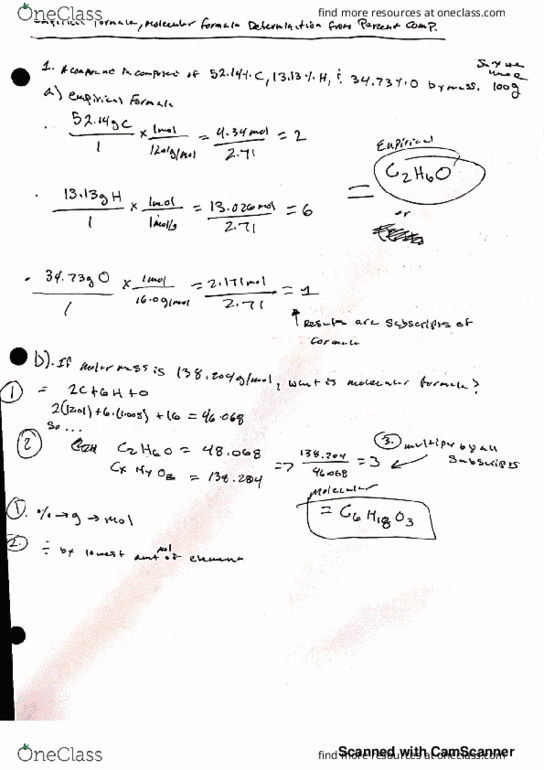 OneClass
find more resources at oneclass.com
Empirical Formula, Molecular Formula Determination From Percent Comp.
1. A compound is composed of 52.14% C, 13.13% H, & 34.73% O by mass.
100g
a) Empirical Formula
52.14g C / 1 × 1mol / 12.01g/mol = 4.34mol / 2.71 = 2
13.13g H / 1 × 1mol / 1mol/g = 13.026mol / 2.71 = 6
34.73g O / 1 × 1mol / 16.0g/mol = 2.171mol / 2.71 = 1
Empirical
= C2H6O
or
↑ Results are subscripts of
formula
b). If molar mass is 138.204g/mol, what is molecular formula?
① = 2C+6H+O
2(12.01)+6.(1.008)+16 = 46.068
So ...
② C2H6O = 48.068
CxHyOz = 138.204
=> 138.204 / 46.068 = 3
③ multiply by all
subscripts
molecular
= C6H18O3
①. % → g → mol
②. ÷ by lowest amt of element
mol
OneClass
find more resources at oneclass.com
Scanned with CamScanner